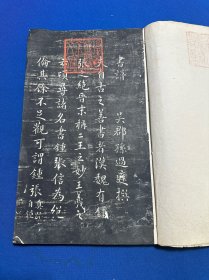 書譜 吳郡孫過庭撰
夫自古之善書者漢魏有鍾
張之絕晉末稱二王之妙王羲之
云頃尋諸名書鍾張信為絕
倫其餘不足觀可謂鍾張